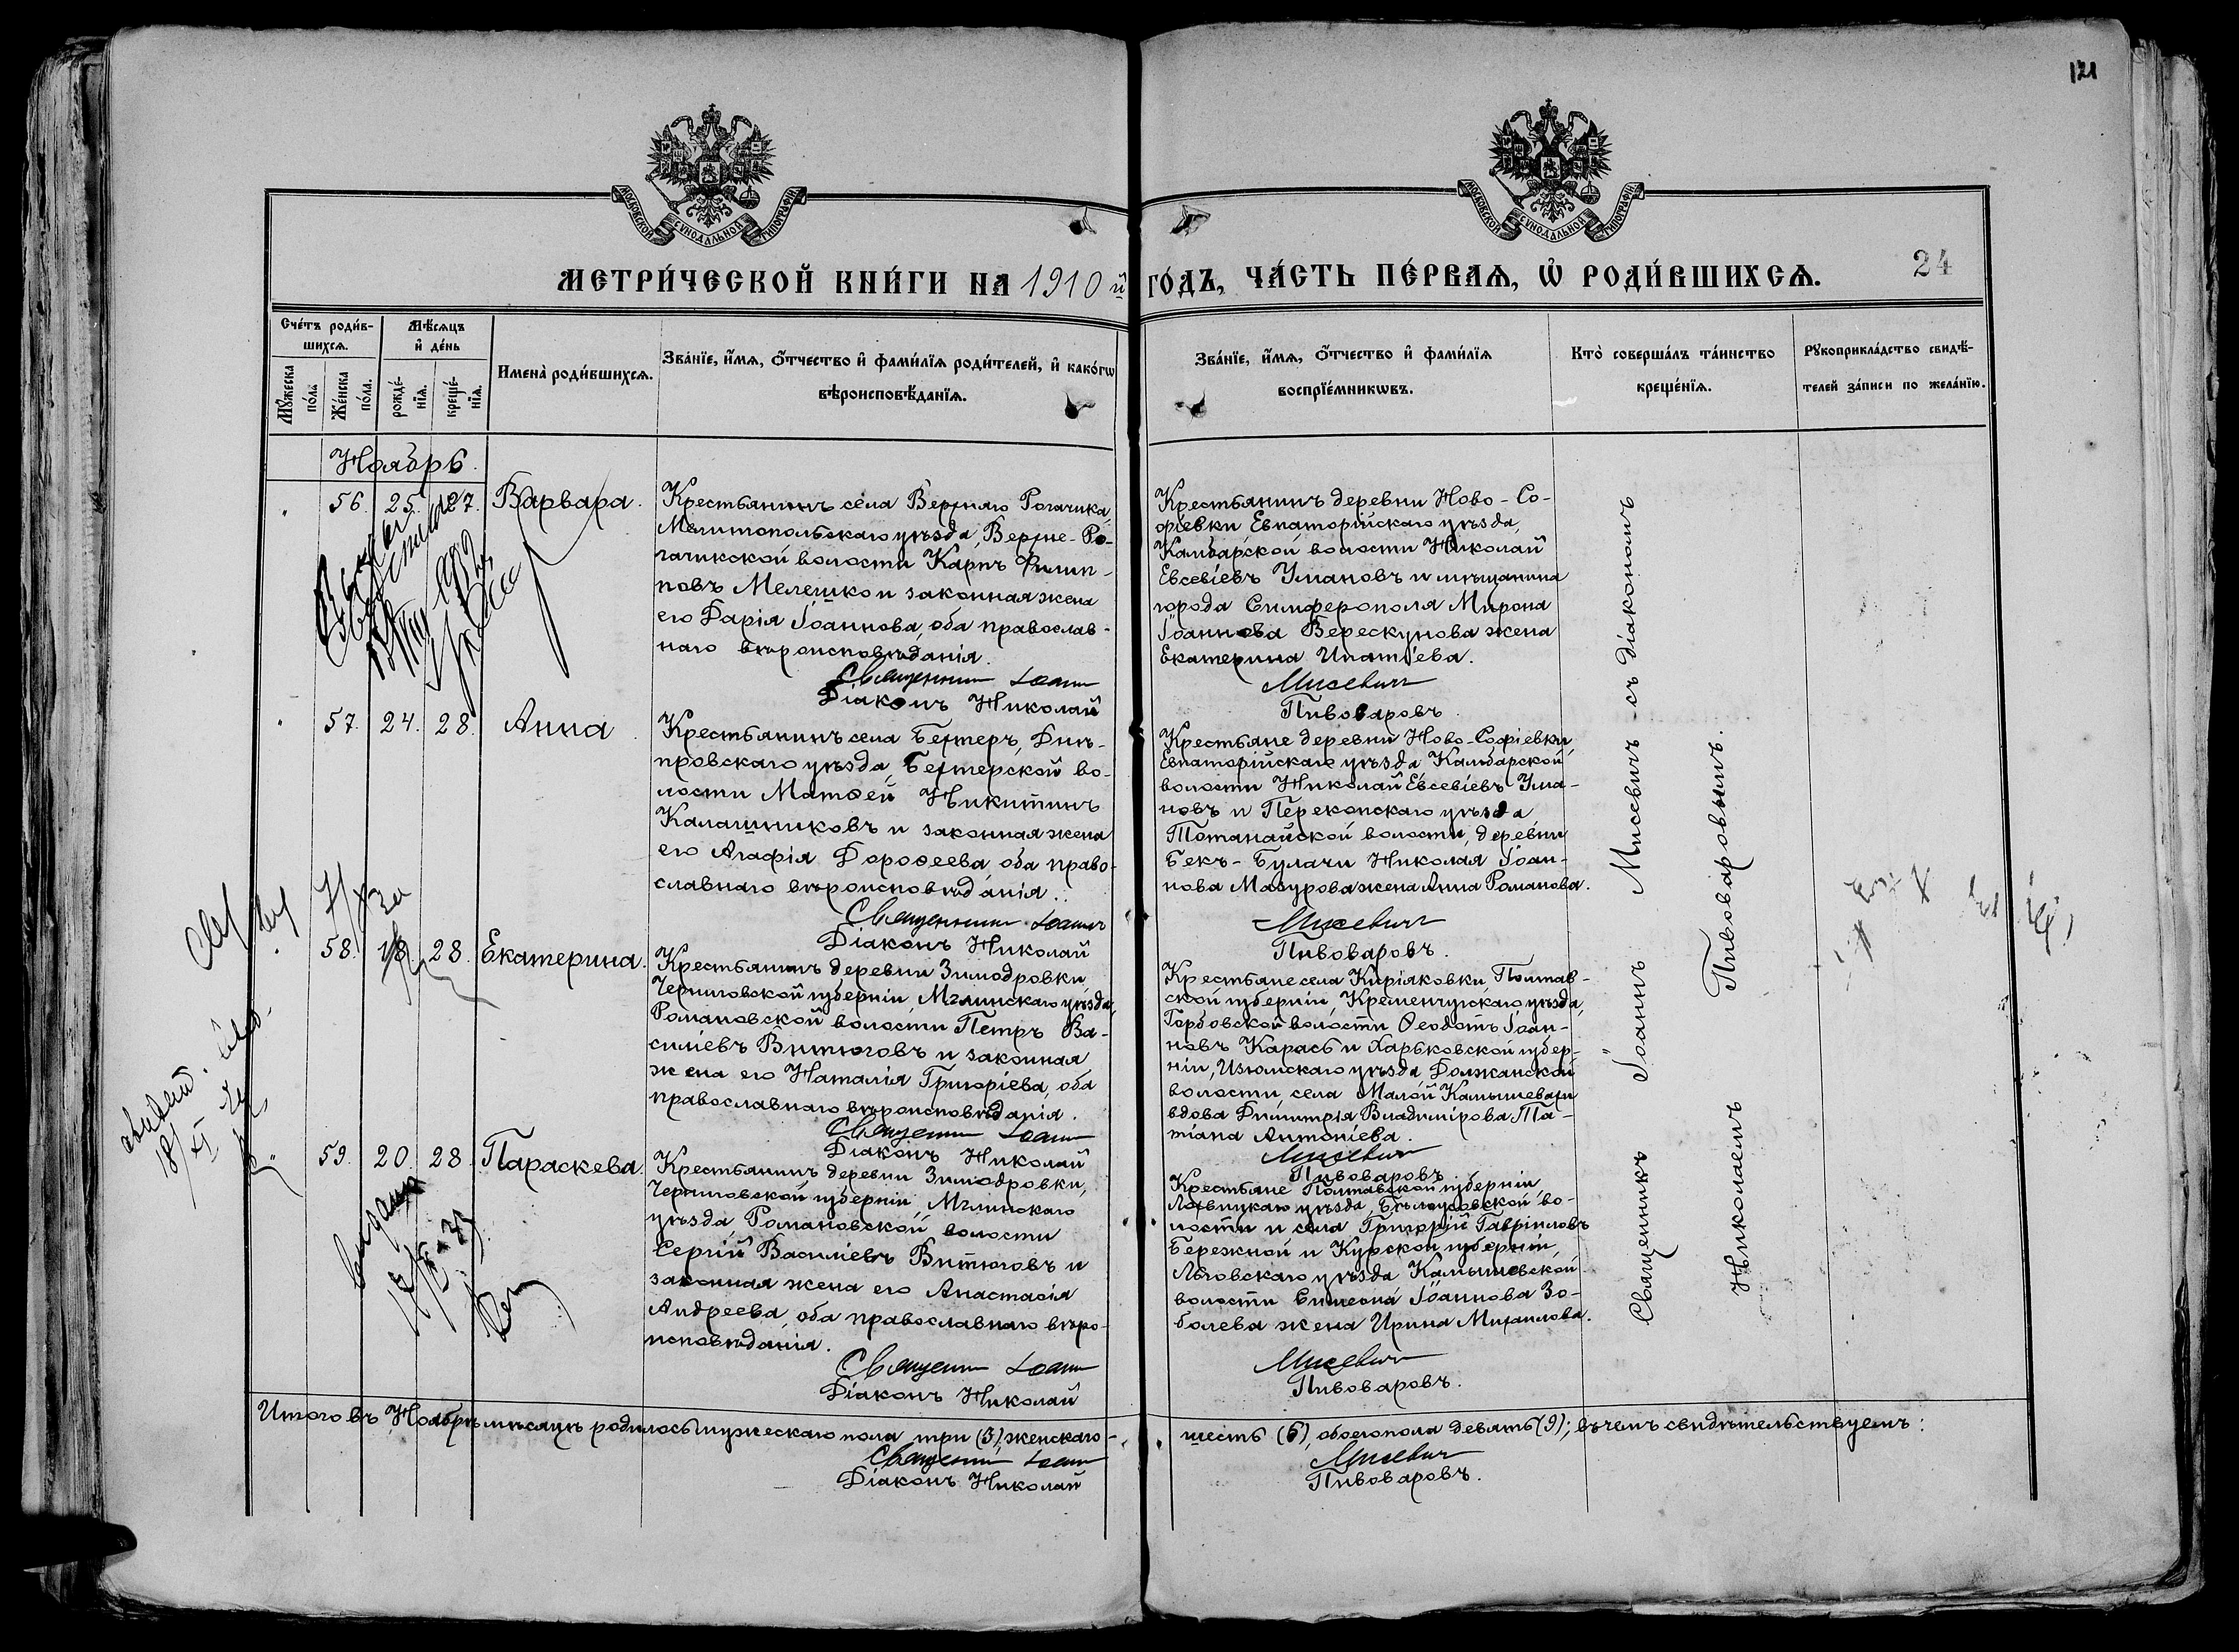 121
МОСКОВСКОЙ СѴНОДАЛЬНОЙ ТИПОГРАФІИ
МОСКОВСКОЙ СѴНОДАЛЬНОЙ ТИПОГРАФІИ
МЕТРИ́ЧЕСКОЙ КНИ́ГИ НА 1910 й ГО́ДЪ, ЧА́СТЬ ПЕ́РВАѦ, Ѡ҆ РОДИ́ВШИХСѦ.
24
Сче́тъ роди́в-
шихсѧ.
Мꙋ́жеска
по́ла
Же́нска
по́ла.
Мѣ́сѧцъ
и҆ де́нь
рожде́-
нїѧ.
креще́-
нїѧ.
Имена̀ роди́вшихсѧ.
Зва́нїе, и҆́мѧ, ѻ҆́тчество и҆ фами́лїѧ роди́телей, и҆ како́гѡ
вѣроисповѣ́данїѧ.
Зва́нїе, и҆́мѧ, ѻ҆́тчество и҆ фами́лїѧ
воспрїе́мникѡвъ.
Кто̀ соверша́лъ та́инство
креще́нїѧ.
Рꙋкоприкла́дство свидѣ́-
телей за́писи по жела́нїю.
Ноябрь.
56. 25. 27. Варвара.
Крестьянинъ села Верхняго Рогачика,
Мелитопольскаго уѣзда, Верхне-Ро-
гачикской волости Карпъ Филип-
повъ Мелешко и законная жена
его Дарія Іоаннова, оба православ-
наго вѣроисповѣданія.
Священникъ Іоаннъ
Діаконъ Николай
Крестьянинъ деревни Ново-Со-
фіевки, Евпаторійскаго уѣзда,
Камбарской волости Николай
Евсевіевъ Умановъ и мѣщанина
города Симферополя Мирона
Іоаннова Верескунова жена
Екатерина Ипатіева.
Мисевичъ
Пивоваровъ.
57. 24. 28. Анна
Крестьянинъ села Бехтеръ, Днѣ-
провскаго уѣзда, Бехтерской во-
лости Матѳей Никитинъ
Калашниковъ и законная жена
его Агафія Дороѳеева, оба право-
славнаго вѣроисповѣданія.
Священникъ Іоаннъ
Діаконъ Николай
Крестьяне деревни Ново-Софіевки,
Евпаторійскаго уѣзда Камбарской
волости Николай Евсевіевъ Ума-
новъ и Перекопскаго уѣзда
Тотанайской волости, деревни
Бекъ-Булачи Николая Іоан-
нова Мазурова жена Анна Романова.
Мисевичъ
Пивоваровъ.
58. 18. 28. Екатерина.
Крестьянинъ деревни Зимодровки,
Черниговской губерніи, Мглинскаго уѣзда,
Романовской волости Петръ Ва-
силіевъ Витюговъ и законная
жена его Наталія Григоріева, оба
православнаго вѣроисповѣданія.
Священникъ Іоаннъ
Діаконъ Николай
Крестьяне села Киріаковки, Полтав-
ской губерніи, Кременчугскаго уѣзда,
Горбовской волости Ѳеодотъ Іоан-
новъ Карась и Харьковской губер-
ніи, Изюмскаго уѣзда, Должанской
волости, села Малой Камышевахи
вдова Димитрія Владимірова Та-
тіана Антоніева.
Мисевичъ
Пивоваровъ.
59. 20. 28. Параскева.
Крестьянинъ деревни Зимодровки,
Черниговской губерніи, Мглинскаго
уѣзда, Романовской волости
Сергій Василіевъ Витюговъ и
законная жена его Анастасія
Андреева, оба православнаго вѣро-
исповѣданія.
Священникъ Іоаннъ
Діаконъ Николай
Крестьяне Полтавской губерніи
Лохвицкаго уѣзда, Бѣлоусовской во-
лости и села Григорій Гавріиловъ
Бережной и Курской губерніи,
Льговскаго уѣзда Камышевской
волости Симеона Іоаннова Зо-
болева жена Ирина Михаилова.
Мисевичъ
Пивоваровъ.
Священникъ Іоаннъ Мисевичъ съ діакономъ
Николаемъ Пивоваровымъ.
Итого въ Ноябрѣ мѣсяцѣ родилось мужескаго пола три (3), женскаго- шесть (6), обоего пола девять (9); въ чемъ свидѣтельствуемъ:
Священникъ Іоаннъ Мисевичъ
Діаконъ Николай Пивоваровъ.